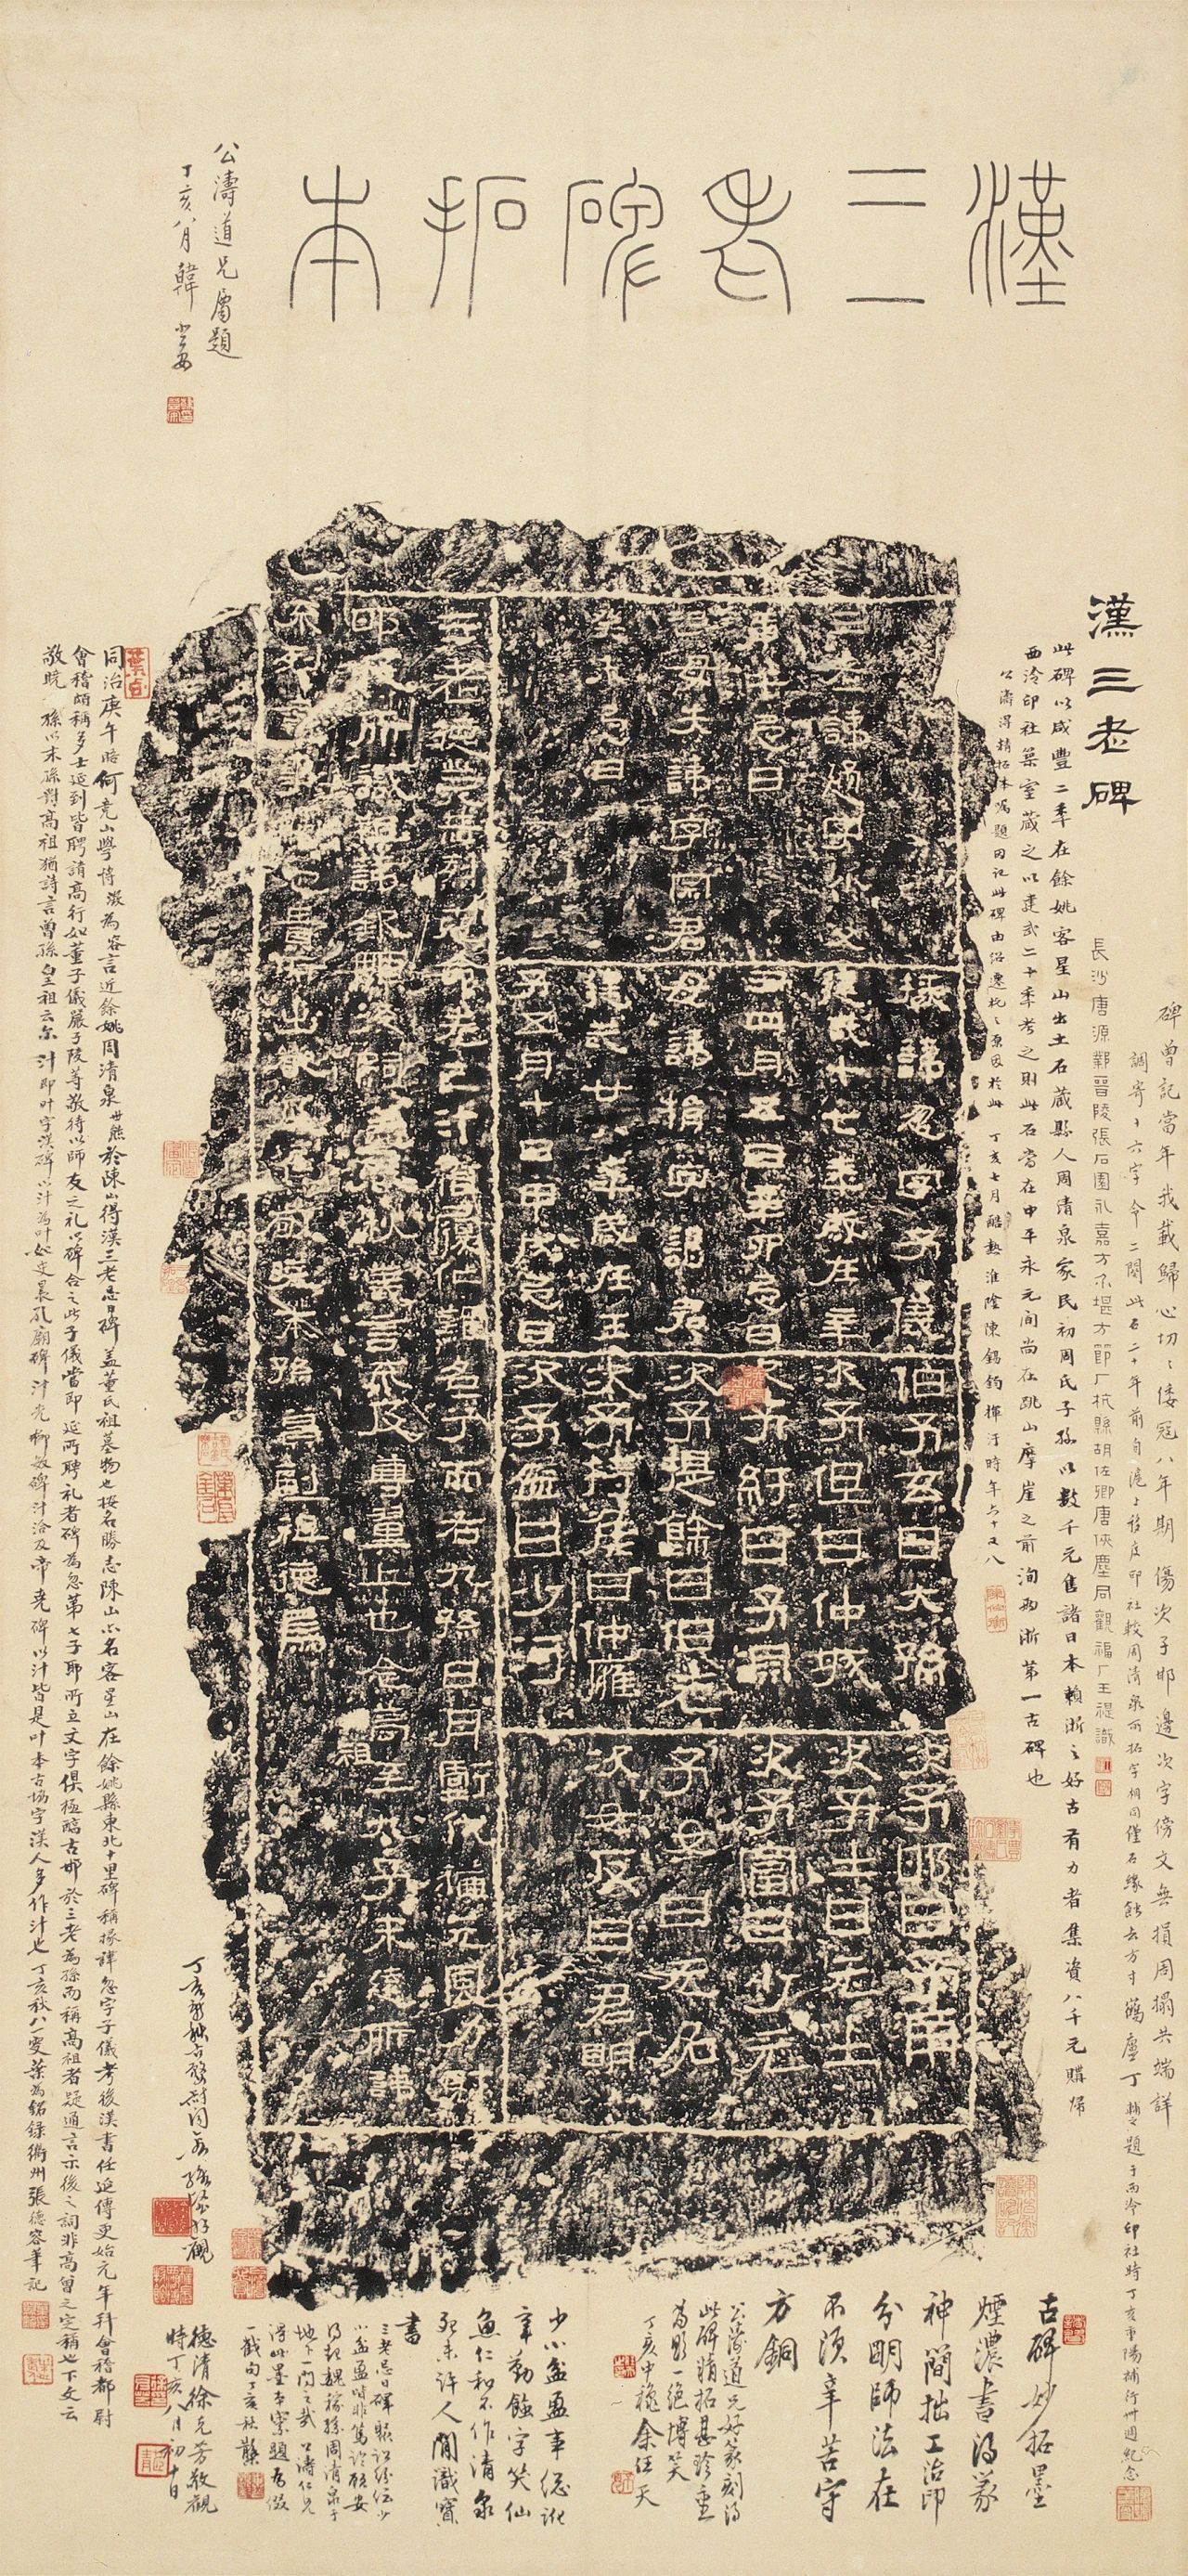 漢三老碑拓本
公濤道兄屬題
丁亥八月韓登安
碑曾記當年我載歸心切切倭寇八年期傷次子邯邊次字傍文無損周搨共端詳
調寄十六字令二闋此石二十年前自滬上移庋印社較周清泉所拓字相同僅石緣蝕去方寸鶴廬丁輔之題于西泠印社時丁亥重陽補行卅週紀念
漢三老碑
長沙唐源鄴晉陵張石園永嘉方介堪方節厂杭縣胡佐卿唐俠塵同觀福厂王禔識
此碑以咸豐二年在餘姚客星山出土石藏縣人周清泉家民初周氏子孫以數千元售諸日本賴浙之好古有力者集資八千元購歸
西泠印社築室藏之以建武二十年考之則此石當在中平永元間尚在跳山摩崖之前洵為浙第一古碑也
公濤得精拓本囑題因記此碑由紹遷杭之原因於此 丁亥七月酷熱淮陰陳錫鈞揮汗時年六十又八
三老諱通字小父
庚午忌日
祖母失諱字宗君
癸未忌日
掾諱忽字子儀
建武十七年歲在辛
丑四月五日辛卯忌日
母諱捐字謁君
建武廿八年歲在壬
子五月十日甲戌忌日
伯子玄曰大孫
次子但曰仲城
次子紆曰子淵
次子提餘曰伯老
次子持侯曰仲雍
次子盈曰少河
次子邯曰子南
次子士曰元士
次子富曰少元
子女曰无名
次女反曰君明
三老德業赫烈克命先己汁稽履仁難名兮而右九孫日月虧代猶元風力射
邯及所識祖諱欽顯後嗣蓋春秋義言不及尊翼上也念高祖至九子未遠所諱
不列言事觸忌貴所出嚴及焦敬曉末孫冀副祖德焉
同治庚午晤何竟山學博澂為客言近餘姚周清泉世熊於陳山得漢三老忌日碑蓋董氏祖墓物也按名勝志陳山亦名客星山在餘姚縣東北十里碑稱掾諱忽字子儀考後漢書任延傳更始元年拜會稽都尉
會稽頗稱多士延到皆聘請高行如董子儀嚴子陵等敬待以師友之礼以碑合之此子儀當即延所聘礼者碑為忽第七子邯所立文字俱極醕古邯於三老為孫而稱高祖者疑通言示後之詞非高曾之定稱也下文云
敬曉末孫以末孫對高祖猶詩言曾孫皇祖云尒汁即叶字漢碑以汁為叶如史晨孔廟碑汁光柳敏碑汁洽及帝堯碑以汁皆是叶本古協字漢人多作汁也丁亥秋八一叟葉為銘錄衢州張德容筆記
德清徐克芳敬觀
時丁亥八月初十日
古碑妙拓墨
煙濃書得篆
神簡拙工治印
分明師法在
不須辛苦守
方銅
公濤道兄好篆刻得
此碑精拓甚珍重
為題一絕博笑
丁亥中穐余任天
少小盆盂事總訛
辛勤餘字笑仙
魚仁和不作清泉
死未許人間識寶
書